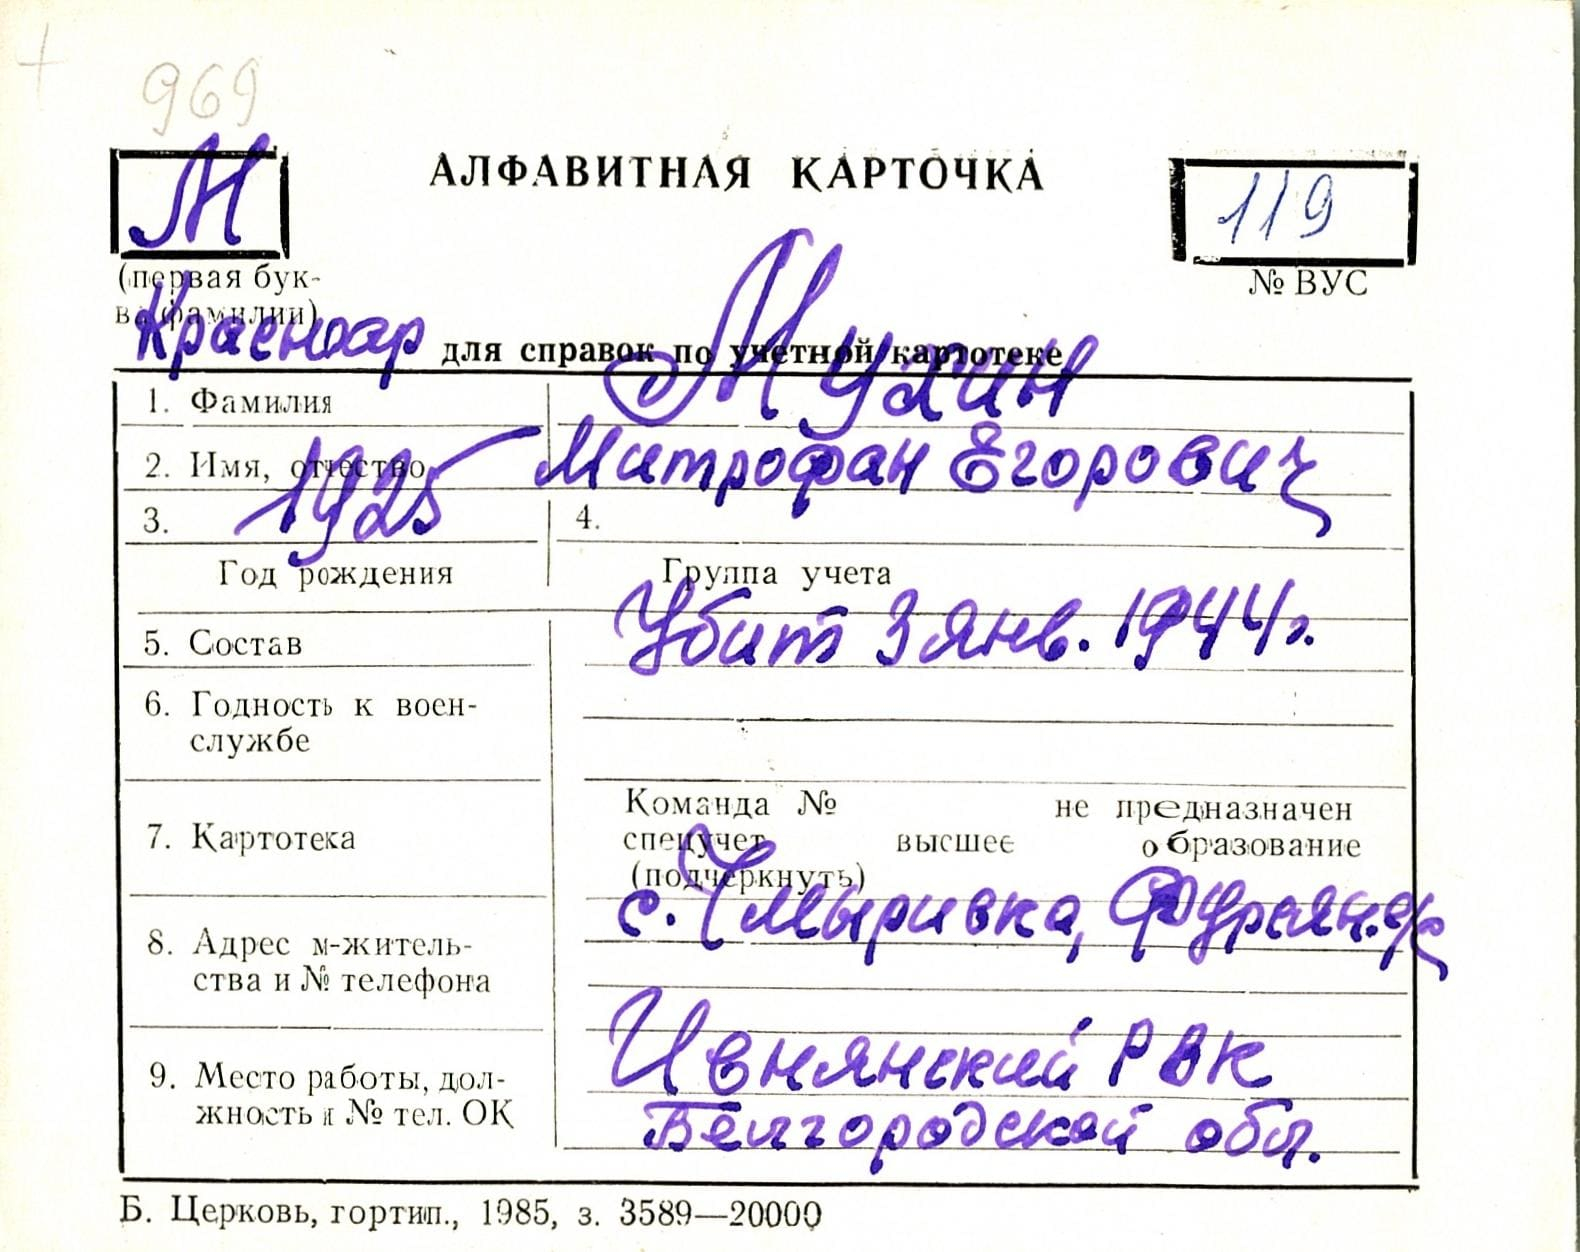 969
М
АЛФАВИТНАЯ КАРТОЧКА
119
(первая бук-
ва фамилии)
№ ВУС
Красноар
для справок по учетной картотеке
1. Фамилия
Мухин
2. Имя, отчество
Митрофан Егорович
3. 1925
4.
Год рождения
Группа учета
5. Состав
Убит 3 янв. 1944г.
6. Годность к воен-
службе
7. Картотека
Команда № не предназначен
спецучет высшее образование
(подчеркнуть)
8. Адрес м-житель-
ства и № телефона
с. Чмыривка,
9. Место работы, дол-
жность и № тел. ОК
Ивнянский РВК
Белгородской обл.
Б. Церковь, гортип., 1985, з. 3589—20000